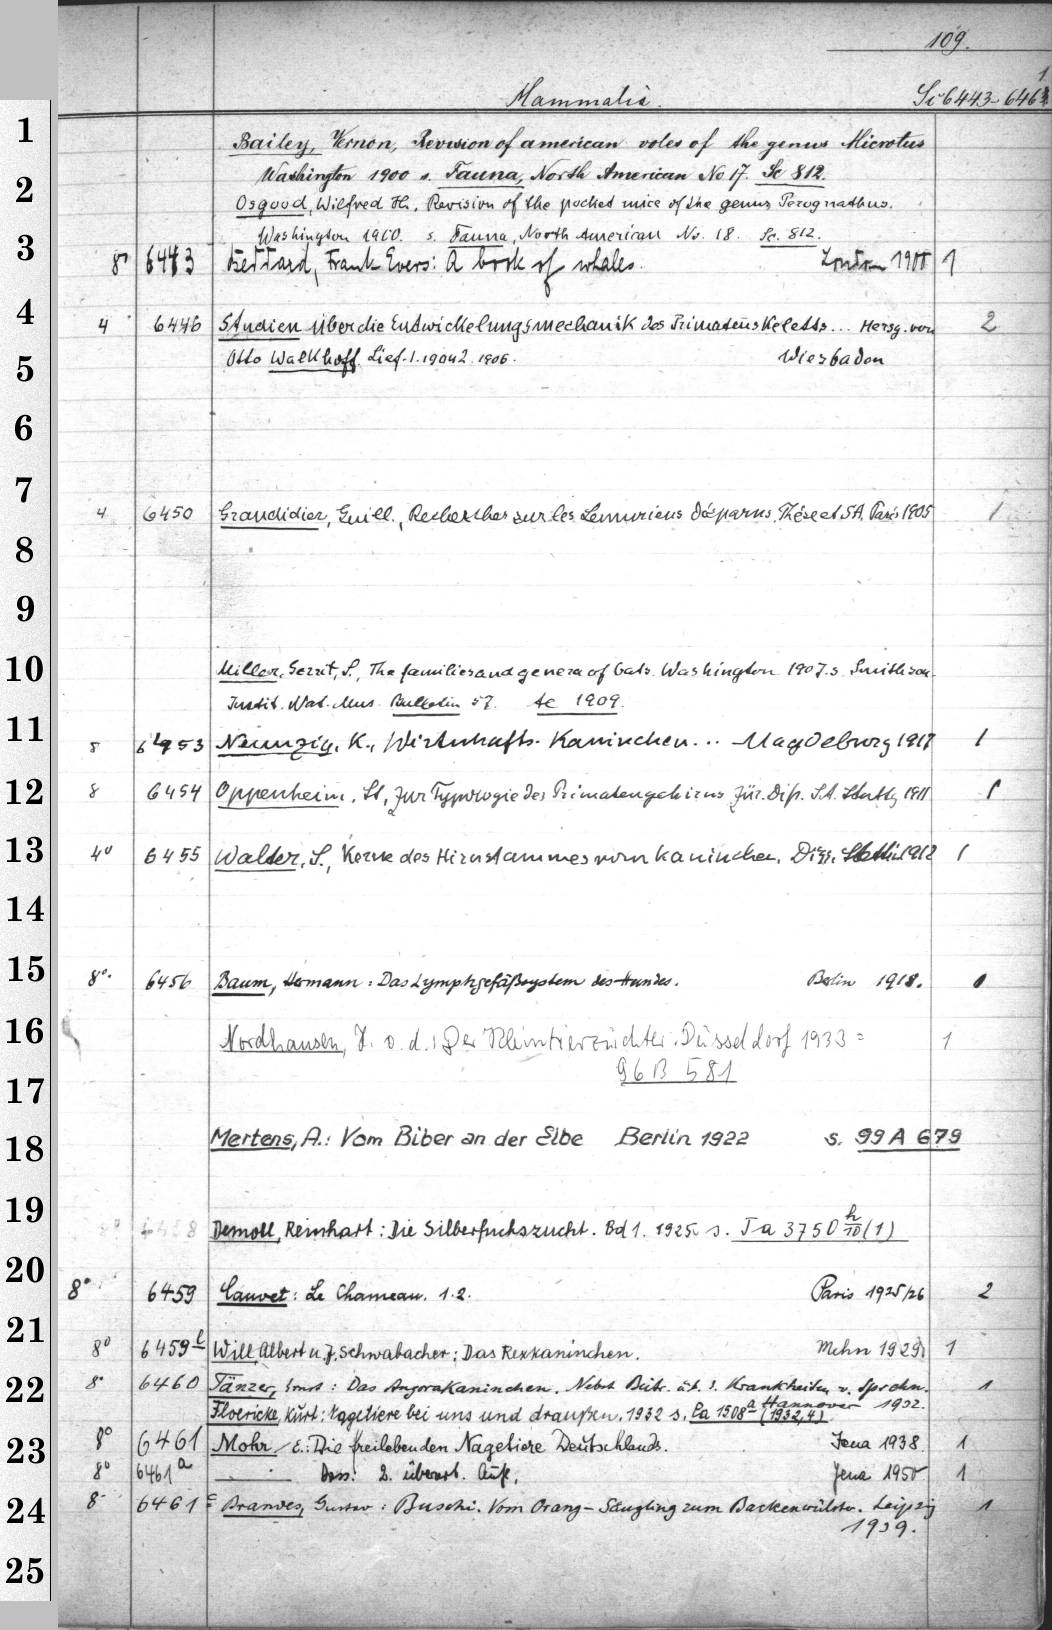 109.
Mammalia. Sc 6443-6461
1
Bailey, Vernon, Revision of american voles of the genus Microtus
2
Washington 1900 s. Fauna, North American No 17. Sc 812.
Osgood, Wilfred H., Revision of the pocket mice of the genus Perognathus.
Washington 1900. s. Fauna, North American No. 18. Sc. 812.
3
8° 6443 Beddard, Frank Evers: A book of whales. London 1900 1
4
4 6446 Studien über die Entwickelungsmechanik des Primatenskeletts... Hersg. von 2
5
Otto Walkhoff. Lief. 1. 1904 2. 1905. Wiesbaden
6
7
4 6450 Grandidier, Guill., Recherches sur les Lémuriens disparus. Thèse et SA. Paris 1905 1
8
9
10
Miller, Gerrit, S., The families and genera of bats. Washington 1907. s. Smithson.
Instit. Nat. Mus. Bulletin 57. Ac 1909.
11
8 6453 Neunzig, K., Wirtschafts-Kaninchen... Magdeburg 1917 1
12
8 6454 Oppenheim, St., Zur Typologie des Primatengehirns Zür. Diss. SA. Stuttg 1911 1
13
4° 6455 Walter, S., Kerne des Hirnstammes vom Kaninchen. Diss. 1912 1
14
15
8°. 6456 Baum, Hermann: Das Lymphgefäßsystem des Hundes. Berlin 1918.
16
Nordhausen, J. v. d.: Der Kleintierzüchter. Düsseldorf 1933 = 1
96 B 581
17
18
Mertens, A.: Vom Biber an der Elbe Berlin 1922 s. 99 A 679
19
Demoll, Reinhart: Die Silberfuchszucht. Bd 1. 1925. s. Ta 3750 h/10 (1)
20
8° 6459 Cauvet: Le Chameau. 1.2. Paris 1925/26 2
21
8° 6459 b Will, Albert u. J. Schwabacher: Das Rexkaninchen. Mchn 1929 1
22
8° 6460 Tänzer, Ernst: Das Angorakaninchen. Nebst Beitr. üb. s. Krankheiten v. 1
Hannover 1932.
Floericke, Kurt: Nagetiere bei uns und draußen. 1932 s. La 1508 a (1932,4)
23
8° 6461 Mohr, E.: Die freilebenden Nagetiere Deutschlands. Jena 1938. 1
8° 6461 a — Dass. 2. überarb. Aufl. Jena 1950 1
24
8° 6461 c Brandes, Gustav: Buschi. Vom Orang-Säugling zum Backenwülster. Leipzig 1
1939.
25